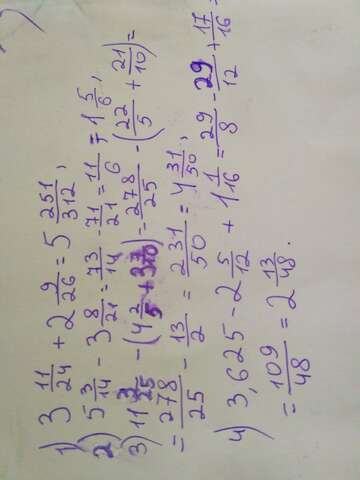 1) 3 11/24 + 2 9/26 = 5 251/312,
2) 5 3/14 - 3 8/21 = 73/14 - 71/21 = 11/6 = 1 5/6,
3) 11 3/25 - (4 2/5 + ) = 278/25 - (22/5 + 21/10) =
= 278/25 - 13/2 = 231/50 = 4 31/50,
4) 3,625 - 2 5/12 + 1 1/16 = 29/8 - 29/12 + 17/16 =
= 109/48 = 2 13/48.